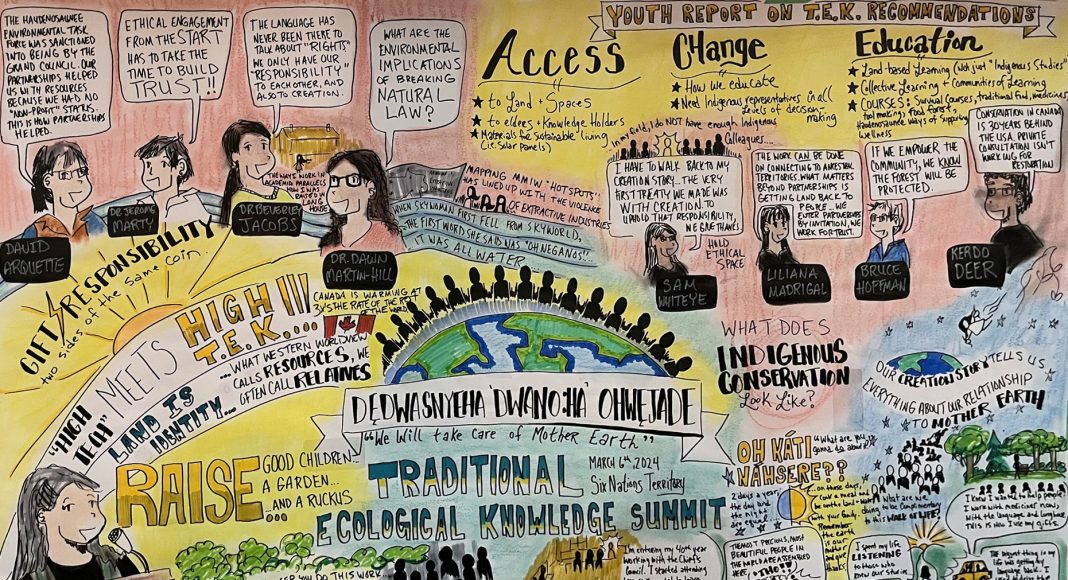 THE HAUDENOSAUNEE
ENVIRONMENTAL TASK
FORCE WAS SANCTIONED
INTO BEING BY THE
GRAND COUNCIL. OUR
PARTNERSHIPS HELPED
US WITH RESOURCES
BECAUSE WE HAD NO
"NON-PROFIT" STATUS.
THIS IS HOW PARTNERSHIPS
HELPED.
DAVID
ARQUETTE
ETHICAL ENGAGEMENT
FROM the START
HAS TO TAKE THE
TIME TO BUILD
TRUST!!
DR. JEROME
MARTY
THE LANGUAGE HAS
NEVER BEEN THERE TO
TALK ABOUT "RIGHTS"
WE ONLY HAVE OUR
"RESPONSIBILITY"
TO EACH OTHER, AND
ALSO TO CREATION.
DR. BEVERLEY
JACOBS
THE WAYS I WORK IN
ACADEMIA PARALLELS
HOW I WAS
RAISED IN
LONG
HOUSE
WHAT ARE THE
ENVIRONMENTAL
IMPLICATIONS
OF BREAKING
NATURAL
LAW?
DR. DAWN
MARTIN-HILL
MAPPING MMIW "HOTSPOTS"
HAS LINED UP WITH THE VIOLENCE
OF EXTRACTIVE INDUSTRIES
WHEN SKYWOMAN FIRST FELL FROM SKYWORLD,
THE FIRST WORD SHE SAID WAS "OHNEGANOS"...
IT WAS ALL WATER...
YOUTH REPORT ON T.E.K. RECOMMENDATIONS
Access
★ to Land + Spaces
★ to elders + Knowledge Holders
★ Materials for "Sustainable" living
(i.e. Solar panels)
CHange
★ How we educate
★ Need Indigenous representatives in all
levels of decision-
making
Education
★ Land-based Learning (Not just "Indigenous Studies")
★ Collective Learning + Communities of Learning
★ COURSES: Survival Courses, traditional food, medicines,
tool making, food forest,
Haudenosaunee Ways of Supporting
Wellness
In my field, I do NOT have enough Indigenous
Colleagues....
I HAVE TO WALK BACK TO MY
CREATION STORY... THE VERY
FIRST TREATY WE MADE WAS
WITH CREATION. TO
UPHOLD THAT RESPONSIBILITY,
WE GIVE THANKS
HOLD
ETHICAL
SPACE
SAM
WHITEYE
THE WORK CAN BE DONE
ON CONNECTING TO ANCESTRAL
TERRITORIES. WHAT MATTERS
BEYOND PARTNERSHIPS IS
GETTING LAND BACK TO
PEOPLE. WE
ENTER PARTNERSHIPS
BY INVITATION, WE
WORK FOR TRUST.
LILIANA
MADRIGAL
IF WE EMPOWER THE
COMMUNITY, WE KNOW
THE FOREST WILL BE
PROTECTED.
BRUCE
HOFFMAN
CONSERVATION IN CANADA
IS 30 YEARS BEHIND
THE USA. PRIVATE
CONSULTATION ISN'T
WORKING FOR
RESTORATION
KERDO
DEER
GIFT / RESPONSIBILITY
two sides of the same coin.
"HIGH
TECH" MEETS
HIGH!!!
T.E.K....
LAND IS
IDENTITY...
CANADA IS WARMING AT
3X's THE RATE OF THE REST
OF THE WORLD
...WHAT WESTERN WORLDVIEW
CALLS RESOURCES, WE
OFTEN CALL RELATIVES
DĘDWASNYEHA'DWANO:HA' OHWĘJADE
"We Will take care of Mother Earth"
RAISE
GOOD CHILDREN...
A GARDEN...
...AND A RUCKUS
TRADITIONAL
MARCH 6th, 2024
Six Nations Territory
ECOLOGICAL KNOWLEDGE SUMMIT
WHAT DOES
INDIGENOUS
CONSERVATION
Look Like?
OUR CREATION STORY TELLS US
EVERYTHING ABOUT OUR RELATIONSHIP
TO MOTHER EARTH
OH KÁTI
NÁHSERE??
"What are you
gonna do about it?"
2 days a year,
the day and
the night
are equal...
...on those days,
cook a meal and
be on the land + water
With your family.
Remember
the earth
is our
mother and
give
thanks.
What are we
doing to be Complimentary
to this WALK OF LIFE?
I know I want to help people!
I Work with medicines now,
With the language and longhouse.
THIS IS How I use my gifts.
THE MOST PRECIOUS, MOST
BEAUTIFUL PEOPLE IN
THE WORLD ARE ASSEMBLED
HERE,
I spent my life
LISTENING
to those
who knew our stories
The biggest thing in my
life was getting my
language back. I
I'm entering my 40th year
working with the Chiefs
Council. I started attending
YOU DO THIS WORK